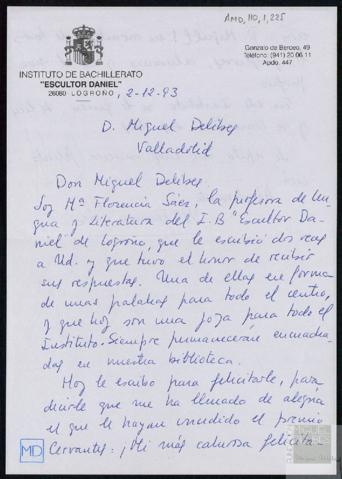 AMD, 110, 1, 225
Gonzalo de Berceo, 49
Teléfono: (941) 20 06 11
Apdo. 447
INSTITUTO DE BACHILLERATO
"ESCULTOR DANIEL"
26080 - LOGROÑO
2-12-93
D. Miguel Delibes
Valladolid
Don Miguel Delibes:
Soy Mª Florencia Sáez, la profesora de Len-
gua y Literatura del I.B "Escultor Da-
niel" de Logroño, que le escribió dos veces
a Ud. y que tuvo el honor de recibir
sus respuestas. Una de ellas en forma
de unas palabras para todo el centro,
y que hoy son una joya para todo el
Instituto. Siempre permanecerán enmarca-
das en nuestra biblioteca.
Hoy le escribo para felicitarle, para
decirle que me ha llenado de alegría
el que le hayan concedido el premio
Cervantes. ¡Mi más calurosa felicita-
MD